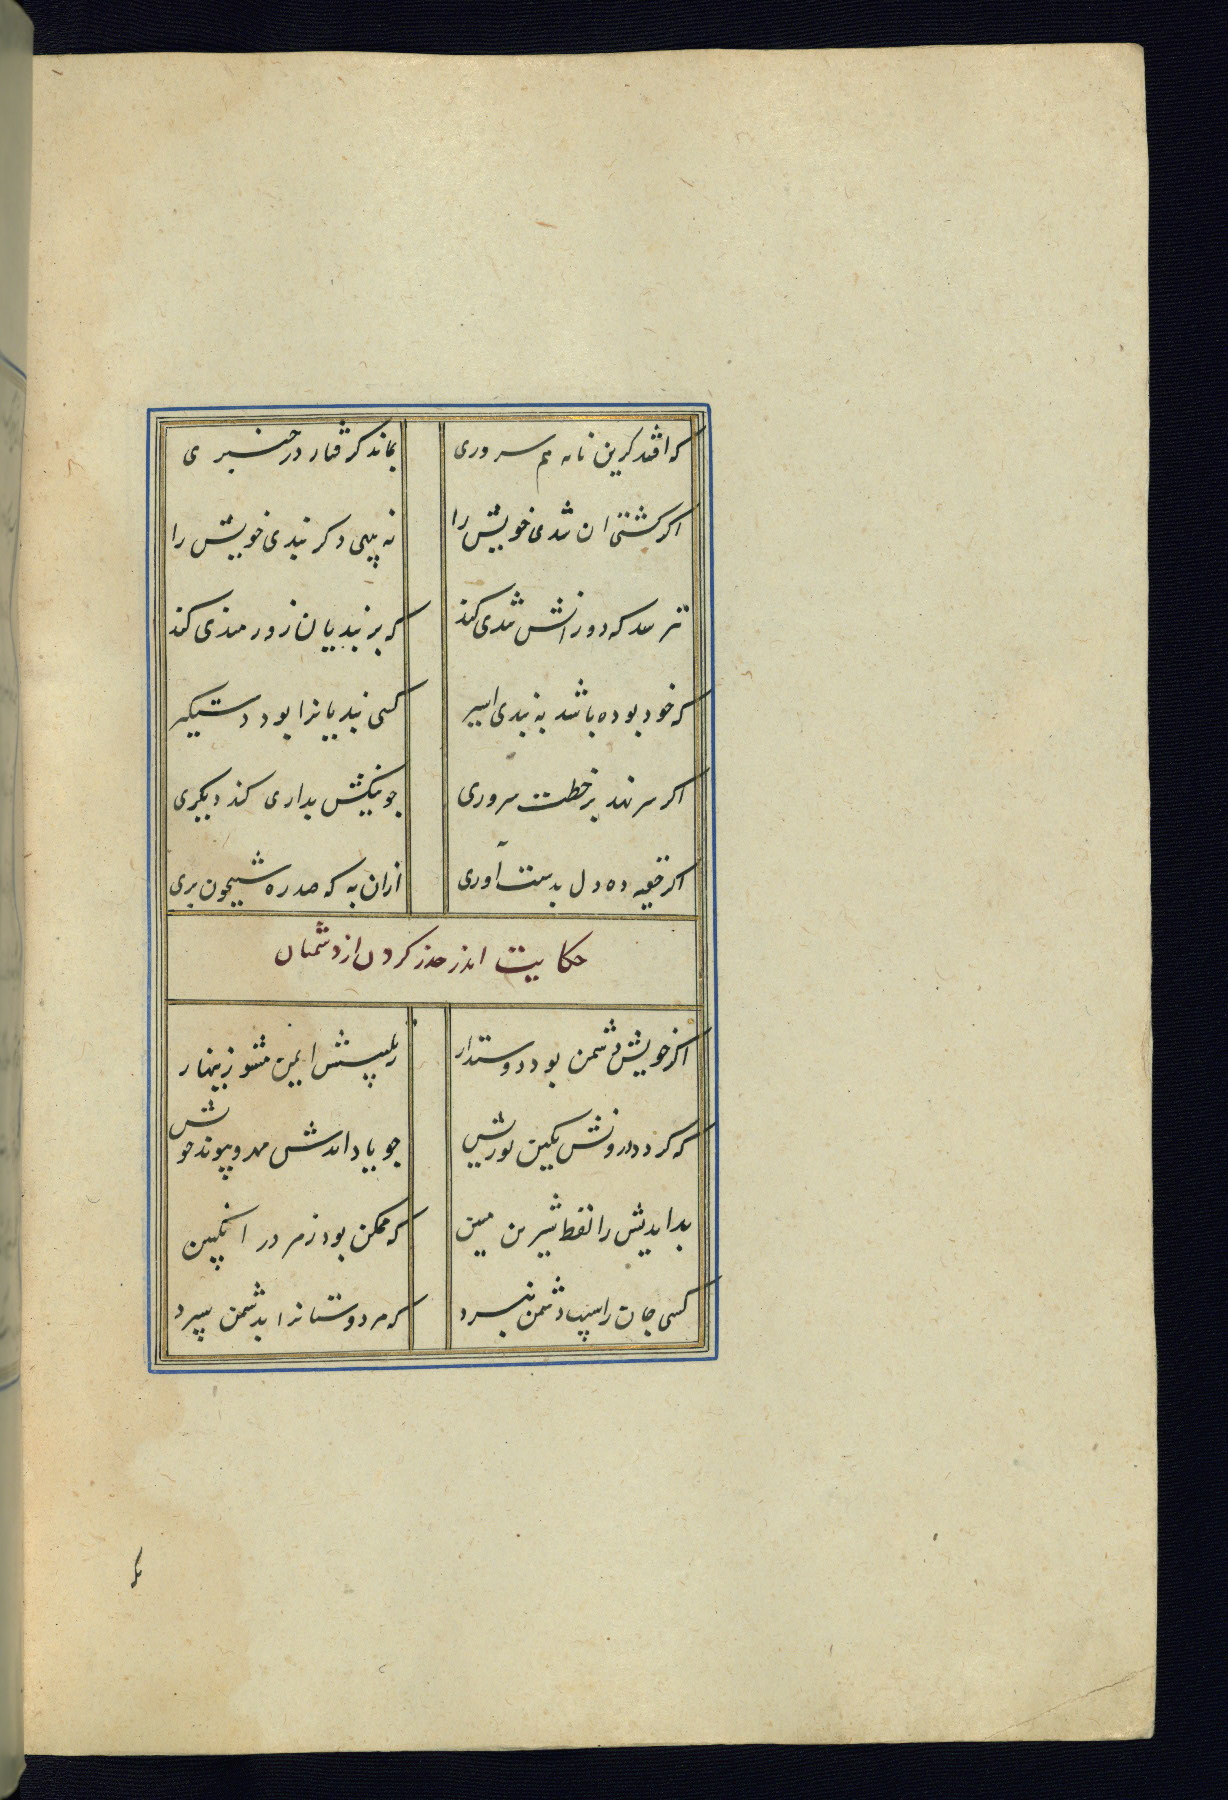 که افتد کزین نامه هم سروری بماند گرفتار در چنبری
اگر کشتی ان بندی خویش را نه بینی دگر بندی خویش را
نترسد که دورانش بندی کند که بر بندیان زورمندی کند
که خود بوده باشد به بندی اسیر کسی بندیانرا بود دستگیر
اگر سر نهد بر خطت سروری چو نیکش بداری کند دیگری
اگر خفیه ده دل بدست آوری ازان به که صد ره شبیخون بری
حکایت اندر حذر کردن از دشمنان
اگر خویش دشمن بود دوستدار ز تلبیسش ایمن مشو زینهار
که گردد درونش بکین تو ریش چو یاد ایدش مهر و پیوند خویش
بد اندیش را لفظ شیرین مبین که ممکن بود زهر در انگبین
کسی جان راسیب دشمن نبرد که مر دوستانرا بدشمن سپرد